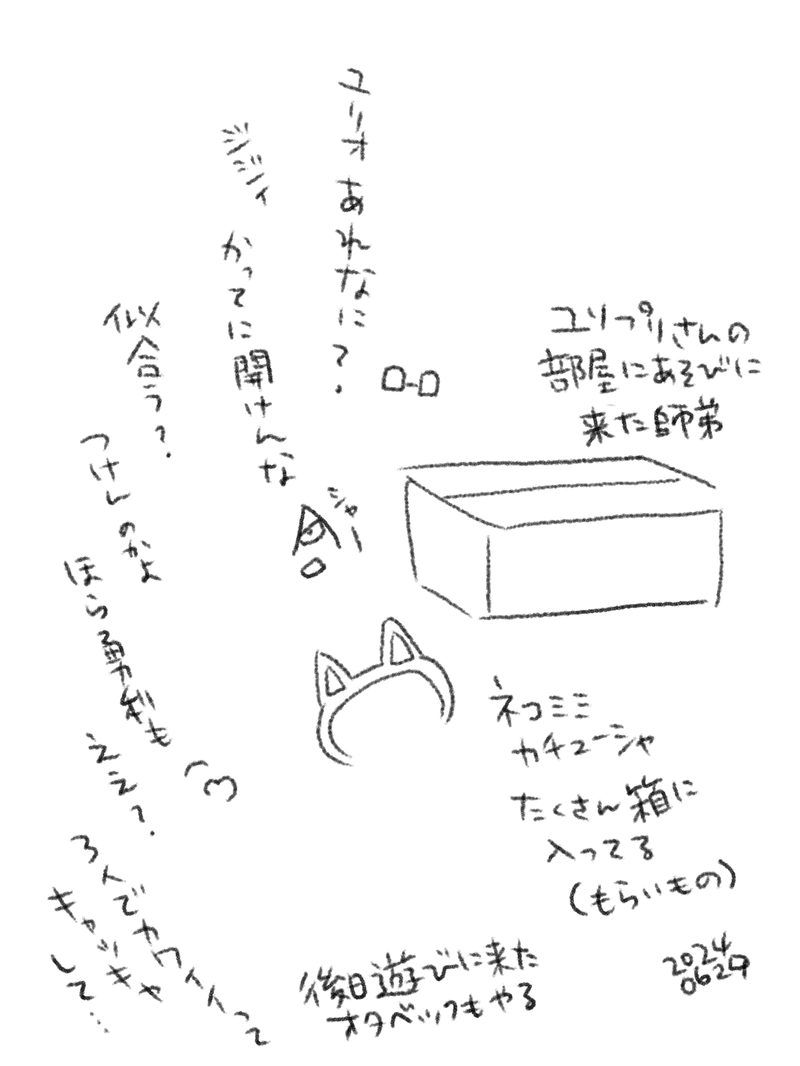 ユリプリさんの
部屋にあそびに
来た師弟
ユリオあれなに?
ジジィ
かってに開けんな
シャー
似合う?
つけんのかよ
ほら勇利も
ええ?
3人でカワイイって
キャッキャ
して…
ネコミミ
カチューシャ
たくさん箱に
入ってる
(もらいもの)
後日遊びに来た
オタベックもやる
2024
0629